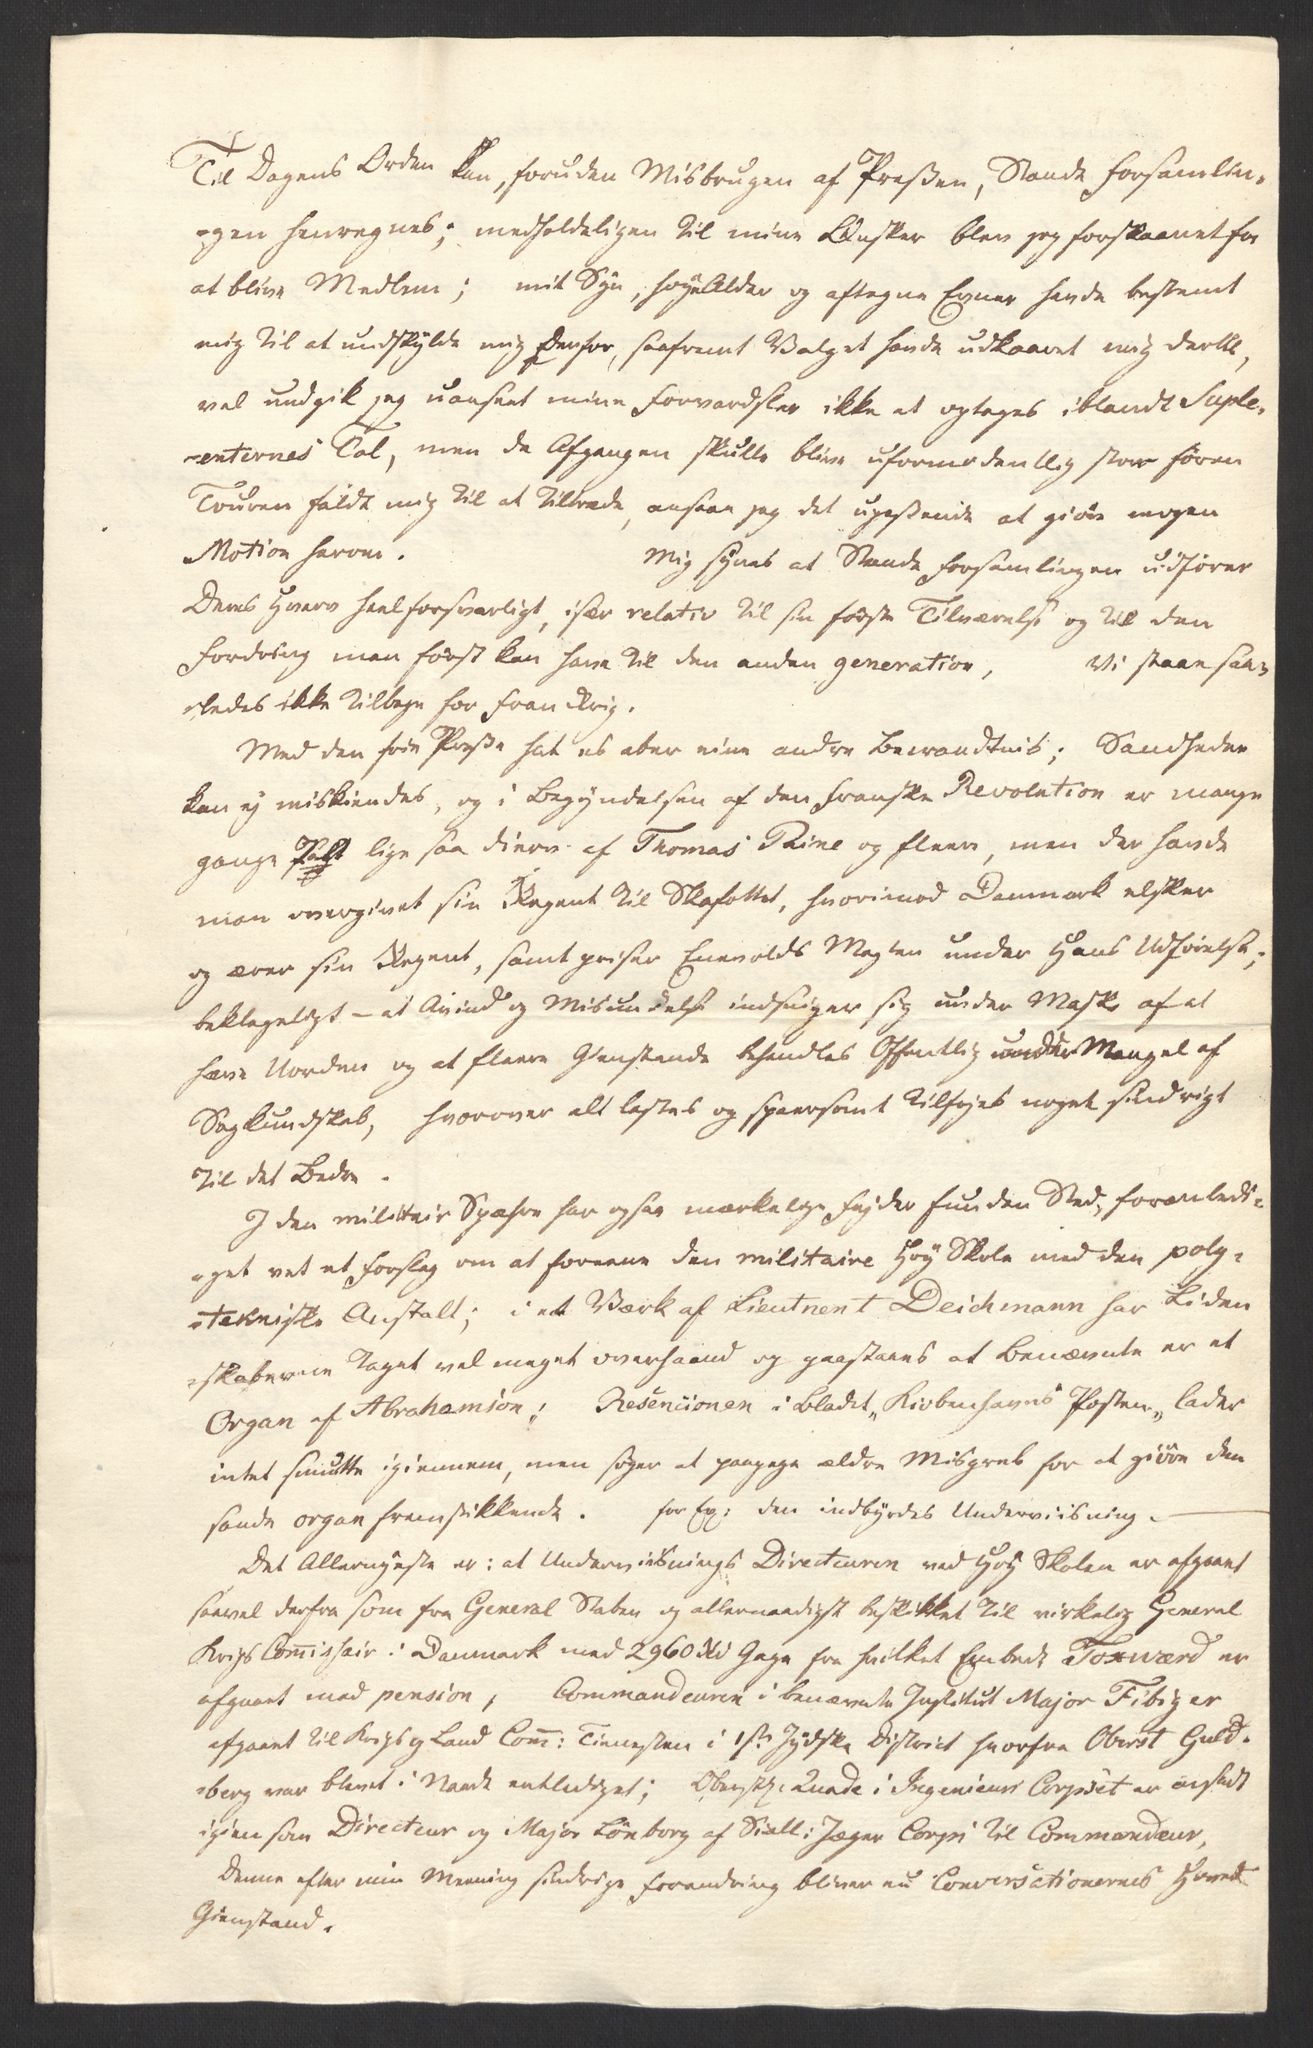 Til Dagens Orden kan, foruden Misbrugen af Preßen, Stænde Forsamlin-
-gen henregnes; medholdeligen til mine Ønsker blev jeg forskaanet for
at blive Medlem; mit Syn, høye Alder og aftagne Evner havde bestemt
mig til at undskylde mig derfor, saafremt Valget havde udkaaret mig dertil,
vel undgik jeg uanseet mine Forvardsler ikke at optages iblandt Suple-
-enternes Tal, men da Afgangen skulle blive uformodentlig stor føren
Touren faldt mig til at tiltræde, ansaae jeg det upaßende at giøre nogen
Motion herom. Mig synes at Stænde Forsamlingen udfører
Deres Hverv heel forsvarligt, især relativ til sin første Tilværelse og til den
Fordring man først kan have til den anden generation, Vi staae saa-
-ledes ikke tilbage for Frankrig.
Med den frie Preße hat es aber eine andre Bewandtnis; Sandheder
kan ej miskiendes, og i Begyndelsen af den franske Revolution er mange
gange sagt lige saa dierve af Thomas Paine og fleere, men der havde
man overgivet sin Regent til Skafottet, hvorimod Danmark elsker
og ærer sin Regent, samt priser Enevolds Magten under Hans Udførelse;
beklageligt – at Avind og Misundelse indsniger sig under Maske af at
hæve Uorden og at fleere Gienstande behandles Offentlig under Mangel af
Sagkundskab, hvorover alt lastes og sparsomt tilføjes noget sindrigt
til det Bedre.
I den militair Sphære har ogsaa mærkelige Fejder funden Sted, foranledi-
-get ved et Forslag om at foreene den militaire Høy Skole med den poly-
-tekniske Anstalt; i et Værk af Lieutnent Deichmann har Liden
-skaberne taget vel meget overhaand og paastaaes at Benævnte er et
Organ af Abrahamson; Resencionen i Bladet „Kiøbenhavns Posten„ lader
intet smutte igiennem, men søger at paapege ældre Misgreb for at giøre den
sande organ fremstikkende. for Ex: den indbyrdes Underviisning. —
Det Allernyeste er: at Underviisnings Directeuren ved Høy Skolen er afgaaet
saavel derfra som fra General Staben og allernaadigst beskikket til virkelig General
Krigs Commissair i Danmark med 2960 Rd Gage fra hvilket Embede Toxwærd er
afgaaet med pension, Commandeuren i benævnte Institut Major Fibig er
afgaaet til Krigs og Land Comm: Tienesten i 1ste Jydske District hvorfra Oberst Guld-
-berg var blevet i Naade entlediget; Oberstlt: Quade i Ingenieur Corpset er ansadt
igien som Directeur og Major Lønborg af Siæll: Jæger Corps til Commandeur,
denne efter min Meening sindrige Forandring bliver nu Conversationernes Hoved
Gienstand.